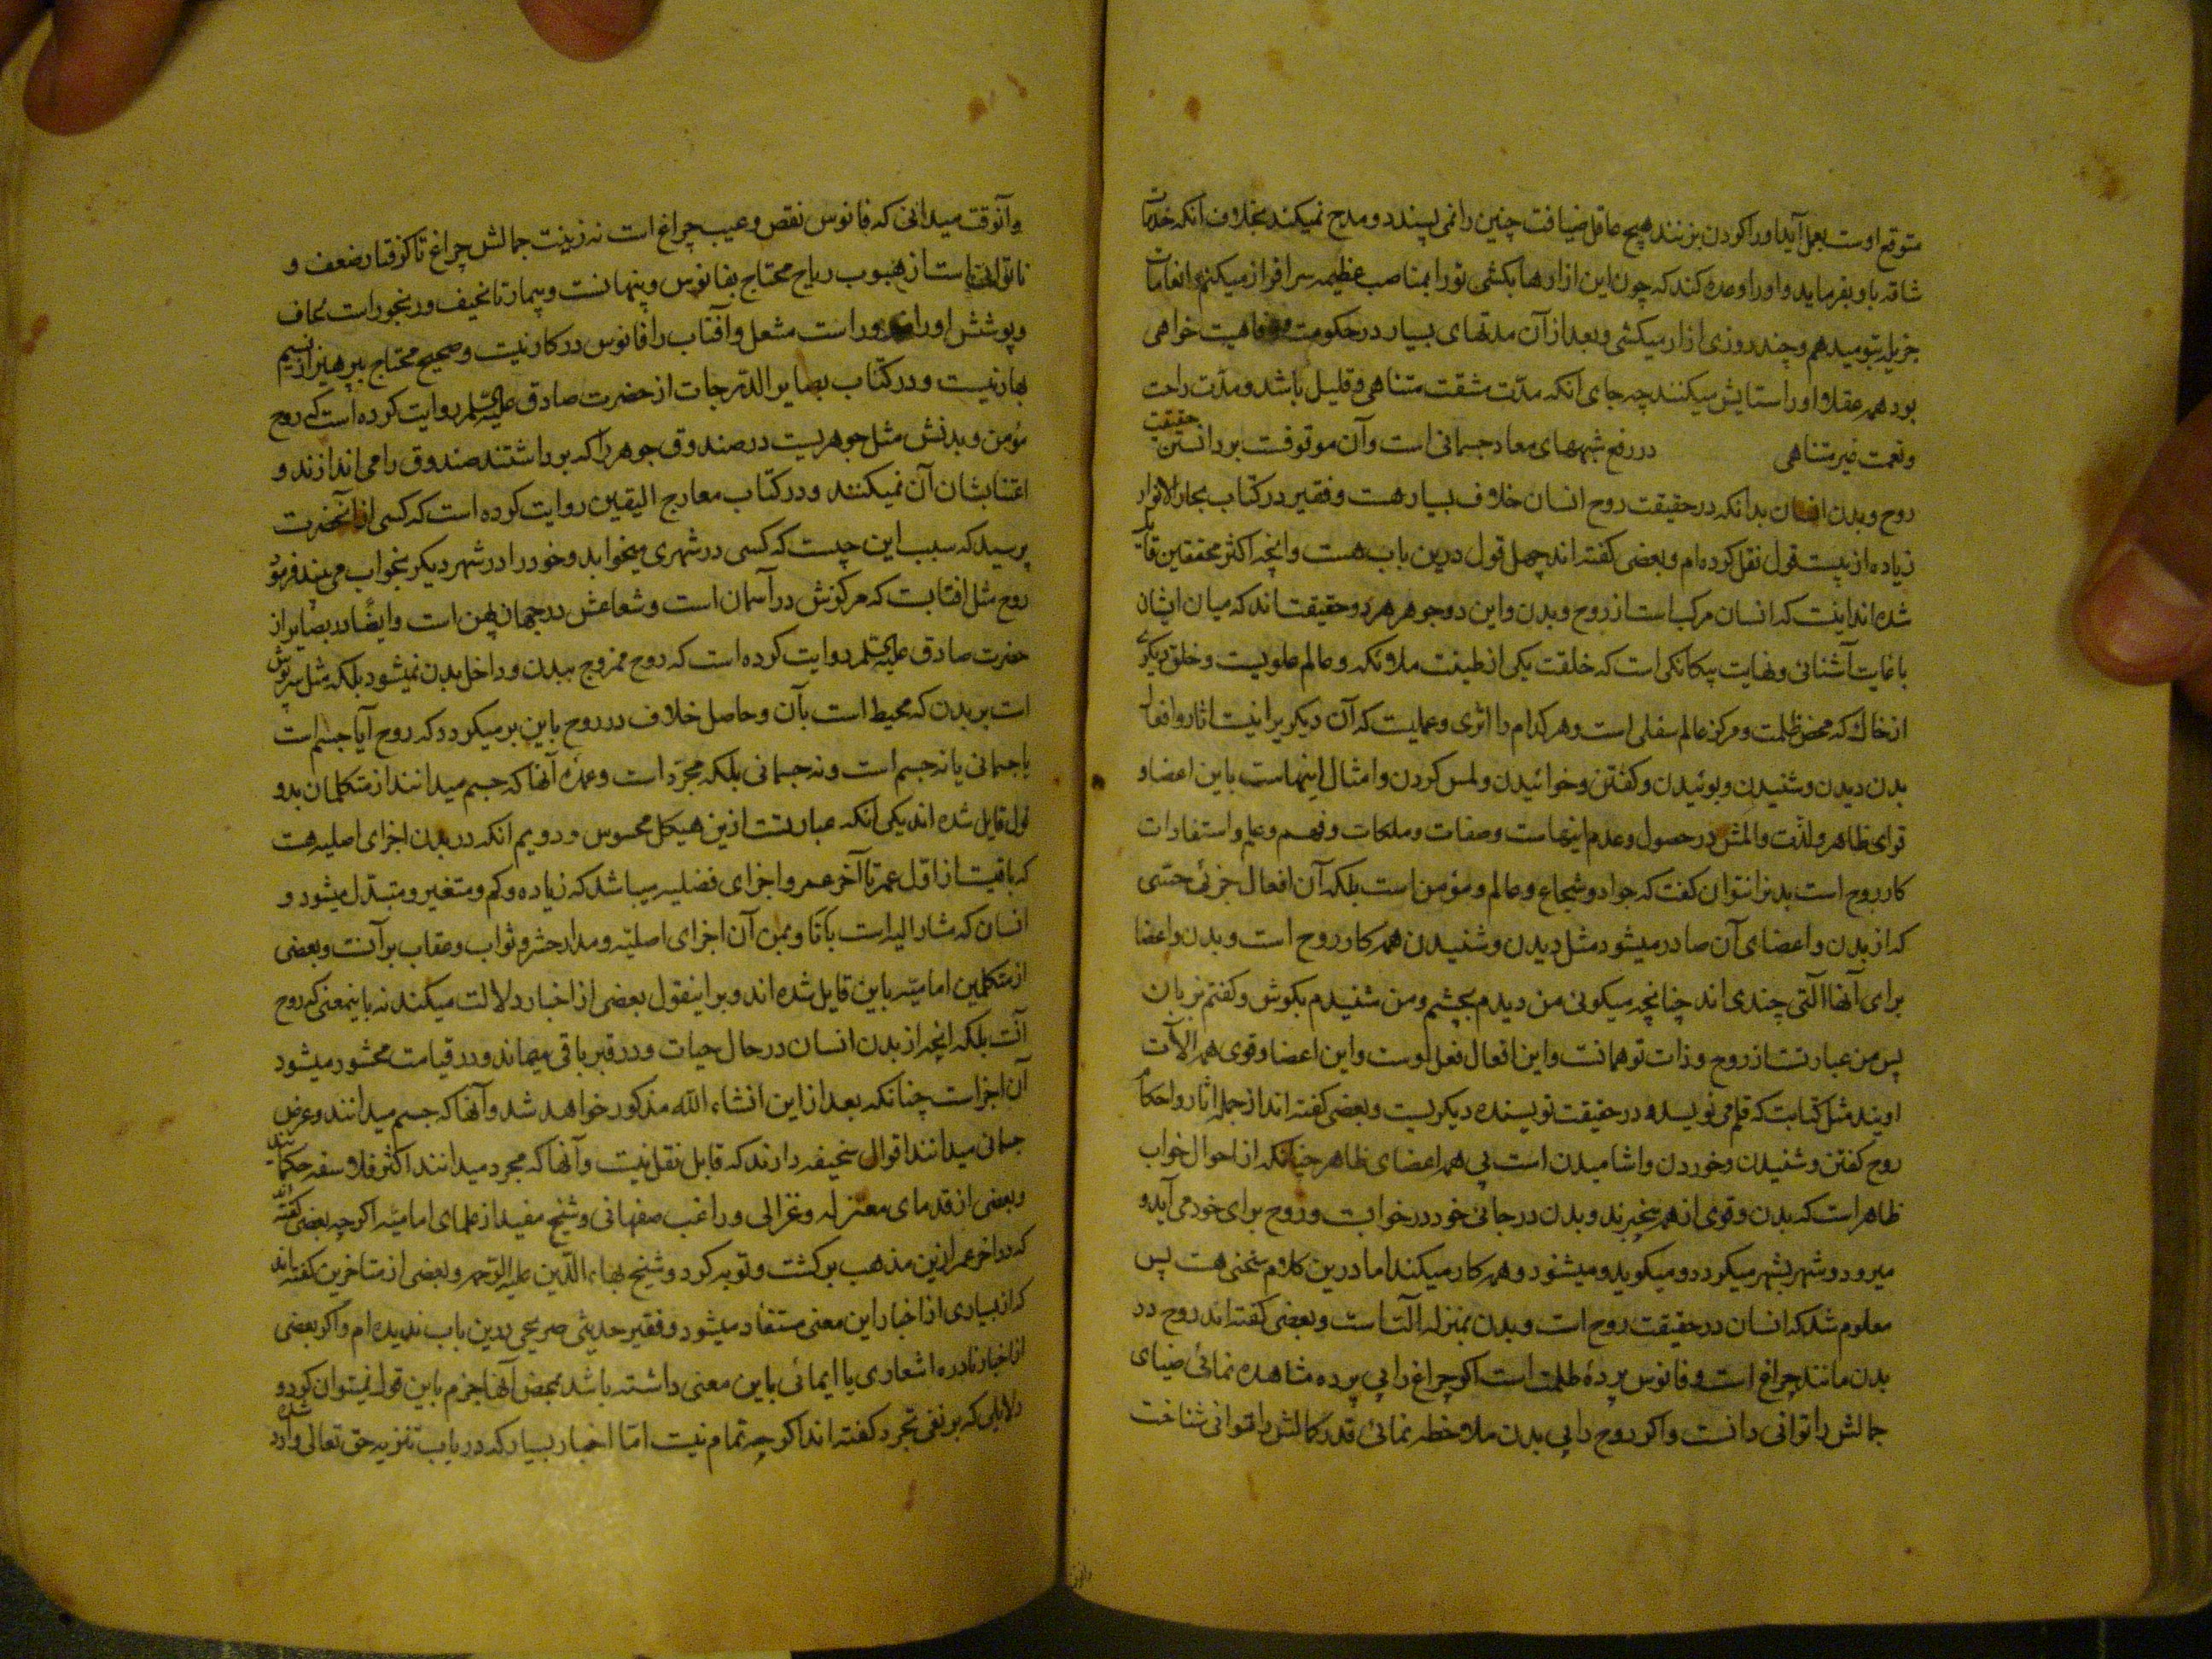 متوقع اوست بعمل آید او را کردن بزنند هیچ عاقل ضیافت چنین را نمی پسندد و مدح نمیکند بخلاف آنکه خدمات
شاقه باو بفرماید و او را وعده کند که چون این ازارها بکشی تو را بمناصب عظیمه سرافراز میکنم و انعامات
جزیل بتو میدهم و چند روزی ازار میکشی و بعد از آن مدتهای بسیار در حکومت و رفاهیت خواهی
بود همه عقلا او را ستایش میکنند چه جای آنکه مدّت مشقت متناهی و قلیل باشد و مدّت راحت
و نعمت غیر متناهی در رفع شبههای معاد جسمانی است و آن موقوفست بر دانستن حقیقت
روح و بدن انسان بدانکه در حقیقت روح انسان خلاف بسیار هست و فقیر در کتاب بحار الانوار
زیاده از بیست قول نقل کرده ام و بعضی کفته اند چهل قول درین باب هست و آنچه اکثر محققین قایل
شده اند اینست که انسان مرکب است از روح و بدن و این دو جوهر هر دو حقیقت اند که میان ایشان
با غایت آشنائی و نهایت بیکانکی است که خلقت یکی از طینت ملائکه و عالم علویست و خلق دیکری
از خاک که محض ظلمت و مرکز عالم سفلی است و هر کدام را اثری و عملیست که آن دیکریرا نیست اثار و افعال
بدن دیدن و شنیدن و بوئیدن و کفتن و خوائیدن و لمس کردن و امثال اینهاست باین اعضا و
قوای ظاهر و لذّت و المش در حصول و عدم اینهاست و صفات و ملکات و فهم و علم و استفادات
کار روح است بدنرا نتوان کفت که جواد و شجاع و عالم و مؤمن است بلکه آن افعال جزئی حسّی
که از بدن و اعضای آن صادر میشود مثل دیدن و شنیدن همه کار روح است و بدن و اعضا
برای آنها آلتی چندی اند چنانچه میکوئی من دیدم بچشم و من شنیدم بکوش و کفتم بزبان
پس من عبارتست از روح و ذات تو همانست و این افعال فعل اوست و این اعضا و قوی همه آلات
اویند مثل کتابت که قلم می نویسد و در حقیقت نویسنده دیکریست و بعضی کفته اند از جمله اثار و احکام
روح کفتن و شنیدن و خوردن و اشامیدن است بی همه اعضای ظاهر چنانکه از احوال خواب
ظاهر است که بدن و قوی از همه بیخبرند و بدن در جائی خود در خوابست و روح برای خود می آید و
میرود و شهر بشهر میکردد و میکوید و میشنود و همه کار میکند اما درین کلام سخنی هست پس
معلوم شد که انسان در حقیقت روح است و بدن بمنزله آلت است و بعضی کفته اند روح در
بدن مانند چراغ است و فانوس پردهٔ ظلمت است اکر چراغ را بی پرده مشاهده نمائی ضیای
جمالش را توانی دانست و اکر روح را بی بدن ملاحظه نمائی قدر کمالش را توانی شناخت
و آنوقت میدانی که فانوس نقص و عیب چراغ است نه زینت جمالش چراغ تا کرفتار ضعف و
ناتوانی است از هبوب ریاح محتاج بفانوس و پنهانست و بیمار تا نحیف و رنجور است لحاف
و پوشش او را ضرور است مشعل و آفتاب را فانوس در کار نیست و صحیح محتاج بپرهیز از نسیم
بهار نیست و در کتاب بصایر الدّرجات از حضرت صادق علیه السّلم روایت کرده است که روح
مؤمن و بدنش مثل جوهریست در صندوق جوهر را که بر داشتند صندوق را می اندازند و
اعتنا بشان آن نمیکنند و در کتاب معارج الیقین روایت کرده است که کسی از آنحضرت
پرسید که سبب این چیست که کسی در شهری میخوابد و خود را در شهر دیکر بخواب می بیند فرمود
روح مثل افتابست که مرکزش در آسمان است و شعاعش در جهان پهن است و ایضًا در بصایر از
حضرت صادق علیه السّلم روایت کرده است که روح ممزوج ببدن و داخل بدن نمیشود بلکه مثل سرپوش
است بر بدن که محیط است بآن و حاصل خلاف در روح باین بر میکردد که روح آیا جسم است
یا جسمانی یا نه جسم است و نه جسمانی بلکه مجرّد است و عمدهٔ آنها که جسم میدانند از متکلمان بدو
قول قایل شده اند یکی آنکه عبارتست ازین هیکل محسوس و دویم آنکه در بدن اجزای اصلیه هست
که باقیست از اوّل عمر تا آخر عمر و اجزای فضلیه میباشد که زیاده و کم و متغیر و متبدّل میشود و
انسان که مشار الیه است بانا و بمن آن اجزای اصلیّه و مدار حشر و ثواب و عقاب بر آنست و بعضی
از متکلمین امامیّه باین قایل شده اند و بر اینقول بعضی از اخبار دلالت میکند نه باینمعنی که روح
آنست بلکه آنچه از بدن انسان در حال حیات و در قبر باقی میماند و در قیامت محشور میشود
آن اجزاست چنانکه بعد از این انشاء الله مذکور خواهد شد و آنها که جسم میدانند و عرض
جسمانی میدانند اقوال سخیفه دارند که قابل نقل نیست و آنها که مجرد میدانند اکثر فلاسفه حکمایند
و بعضی از قدمای معتزله و غزالی و راغب صفهانی و شیخ مفید از علمای امامیّه اکرچه بعضی کفته اند
که در اخر عمر ازین مذهب برکشت و توبه کرد و شیخ بهاء الدّین علیه الرّحمه و بعضی از متاخرین کفته اند
که از بسیاری از اخبار این معنی مستفاد میشود و فقیر حدیثی صریحی درین باب ندیده ام و اکر بعضی
از اخبار نادره اشعاری یا ایمائی باین معنی داشته باشد بمحض آنها جزم باین قول نمیتوان کرد و
دلایلی که بر نفی تجرد کفته اند اکرچه تمام نیست امّا اخبار بسیار که در باب تنزیه حق تعالی وارد شده